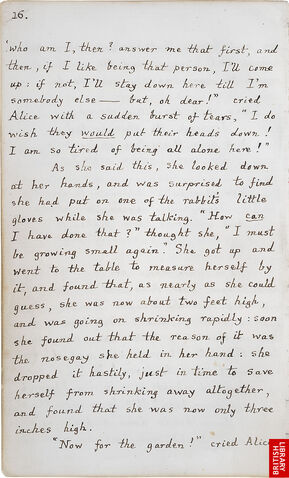 16.
'who am I, then? answer me that first, and
then, if I like being that person, I'll come
up: if not, I'll stay down here till I'm
somebody else — but, oh dear!" cried
Alice with a sudden burst of tears, "I do
wish they would put their heads down!
I am so tired of being all alone here!"
As she said this, she looked down
at her hands, and was surprised to find
she had put on one of the rabbit's little
gloves while she was talking. "How can
I have done that?" thought she, "I must
be growing small again." She got up and
went to the table to measure herself by
it, and found that, as nearly as she could
guess, she was now about two feet high,
and was going on shrinking rapidly: soon
she found out that the reason of it was
the nosegay she held in her hand: she
dropped it hastily, just in time to save
herself from shrinking away altogether,
and found that she was now only three
inches high.
"Now for the garden!" cried Alice
BRITISH
LIBRARY